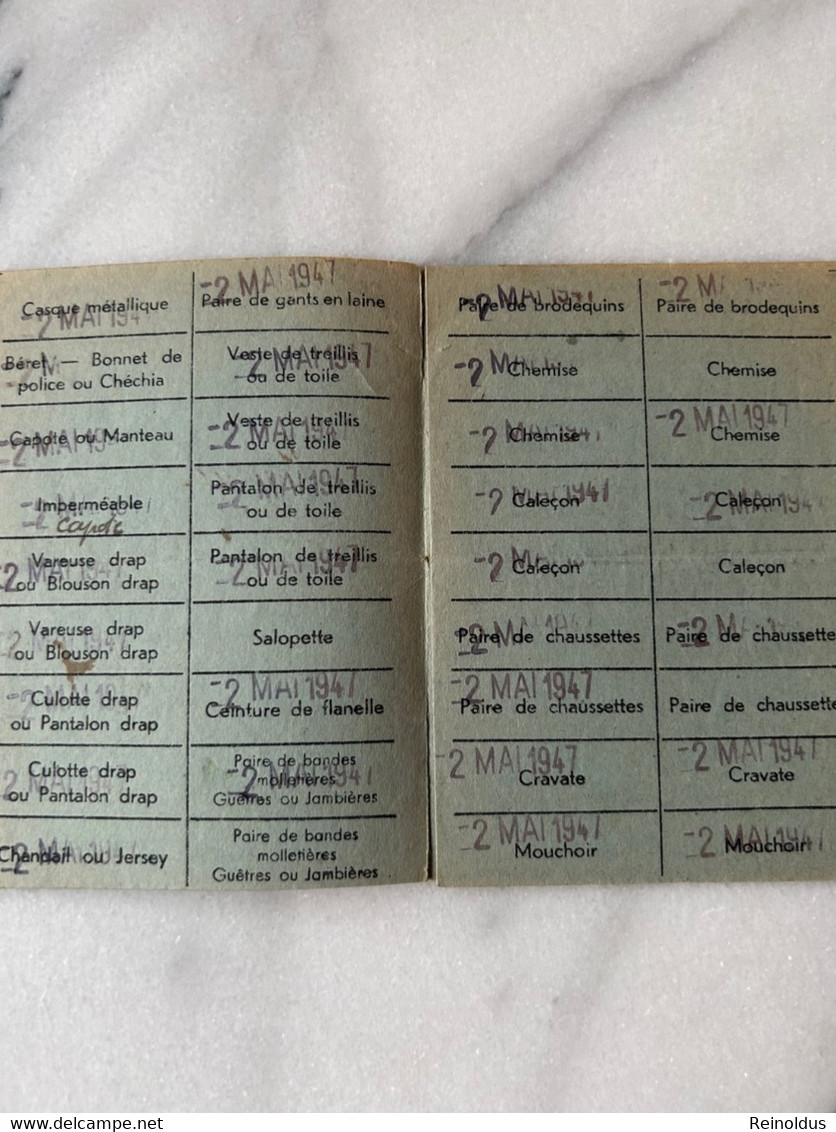 Casque métallique
-2 MAI 194
Béret — Bonnet de
police ou Chéchia
Capote ou Manteau
Imperméable
Capote
Vareuse drap
ou Blouson drap
Vareuse drap
ou Blouson drap
Culotte drap
ou Pantalon drap
Culotte drap
ou Pantalon drap
Chandail ou Jersey
-2 MAI 1947
Paire de gants en laine
Veste de treillis
-2 MAI 1947
ou de toile
Veste de treillis
-2 MAI 194
ou de toile
-2 MAI 1947
Pantalon de treillis
ou de toile
Pantalon de treillis
-2 MAI 1947
ou de toile
Salopette
-2 MAI 1947
Ceinture de flanelle
Paire de bandes
molletières
-2 MAI 1947
Guêtres ou Jambières
Paire de bandes
molletières
Guêtres ou Jambières
-2 MAI 1947
Paire de brodequins
-2 MAI
Chemise
-2 MAI 1947
Chemise
-2 MAI 1947
Caleçon
-2 MAI
Caleçon
Paire de chaussettes
-2 MAI 1947
-2 MAI 1947
Paire de chaussettes
-2 MAI 1947
Cravate
-2 MAI 1947
Mouchoir
-2 MA
Paire de brodequins
Chemise
-2 MAI 1947
Chemise
Caleçon
-2 MAI 194
Caleçon
-2 MAI
Paire de chaussette
Paire de chaussette
-2 MAI 1947
Cravate
-2 MAI 1947
Mouchoir
delcampe.net
Reinoldus